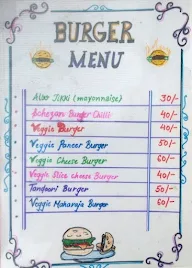 BURGER
MENU
Aloo Tikki (mayonnaise) 30/-
Schezan Burger Chilli 40/-
Veggie Burger 40/-
Veggie Paneer Burger 50/-
Veggie Cheese Burger 60/-
Veggie Slice cheese Burger 40/-
Tandoori Burger 50/-
Veggie Maharaja Burger 60/-